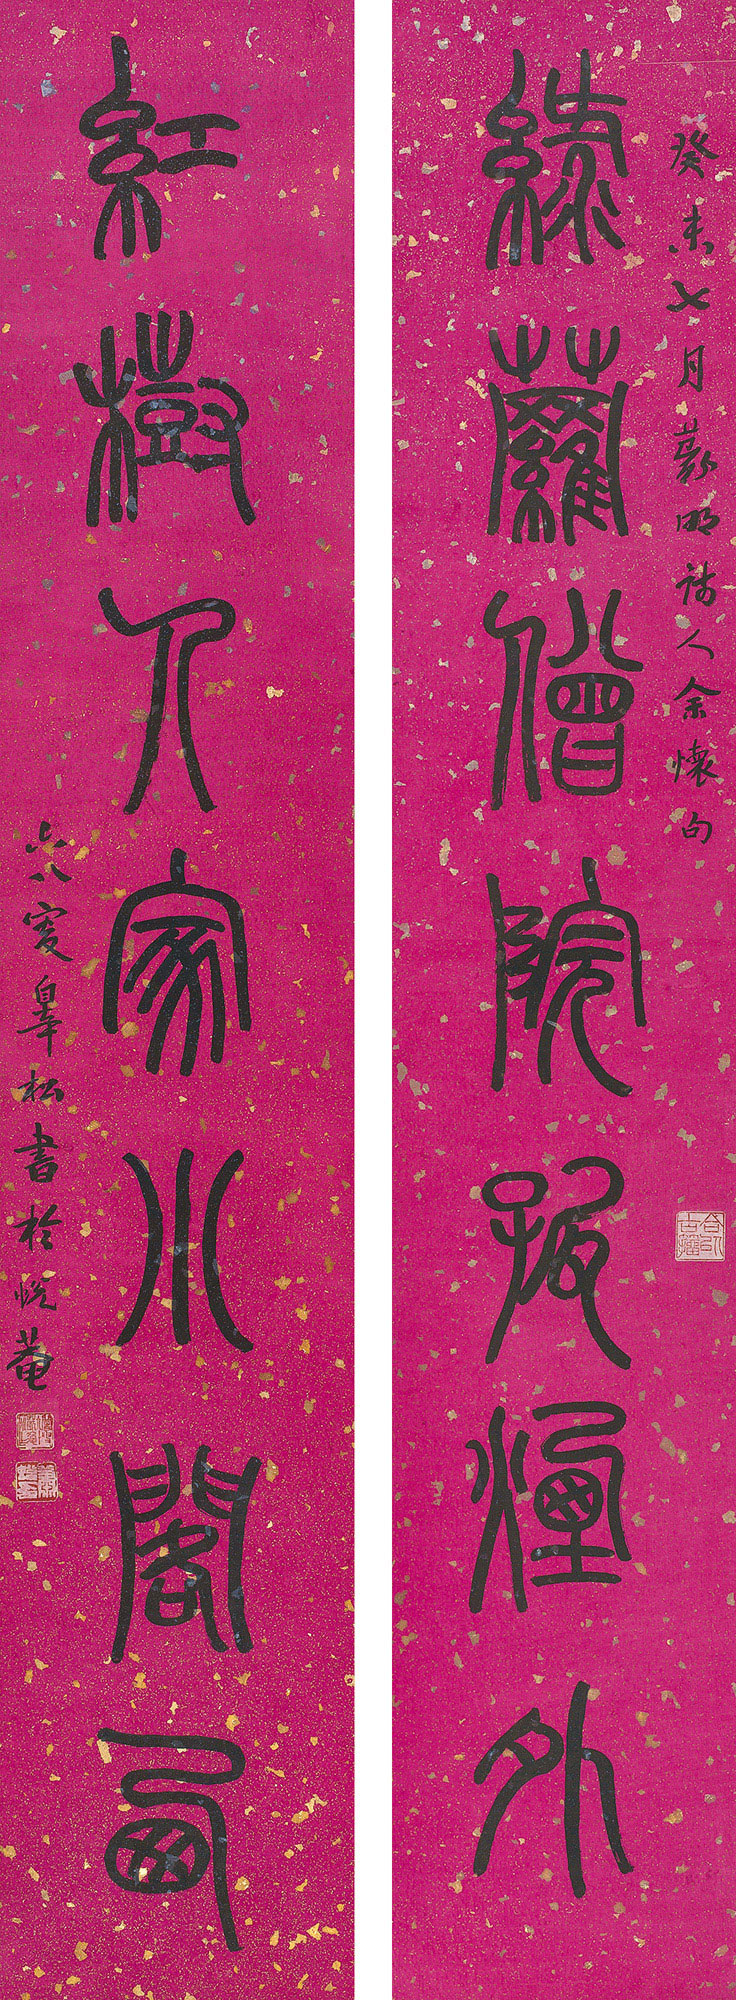 癸未七月篆明詩人余懷句
綠蘿僧院孤煙外
紅樹人家小閣西
六八叟皋松書於悅菴